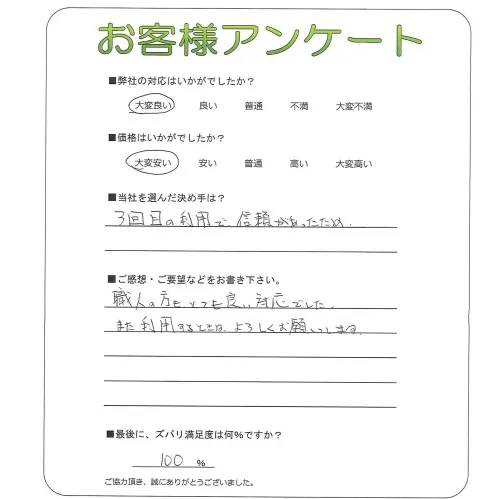 お客様アンケート
■弊社の対応はいかがでしたか?
大変良い 良い 普通 不満 大変不満
■価格はいかがでしたか?
大変安い 安い 普通 高い 大変高い
■当社を選んだ決め手は?
3回目の利用で、信頼があったため.
■ご感想・ご要望などをお書き下さい。
職人の方もとても良い対応でした.
また利用するときは、よろしくお願いします.
■最後に、ズバリ満足度は何%ですか?
100 %
ご協力頂き、誠にありがとうございました。